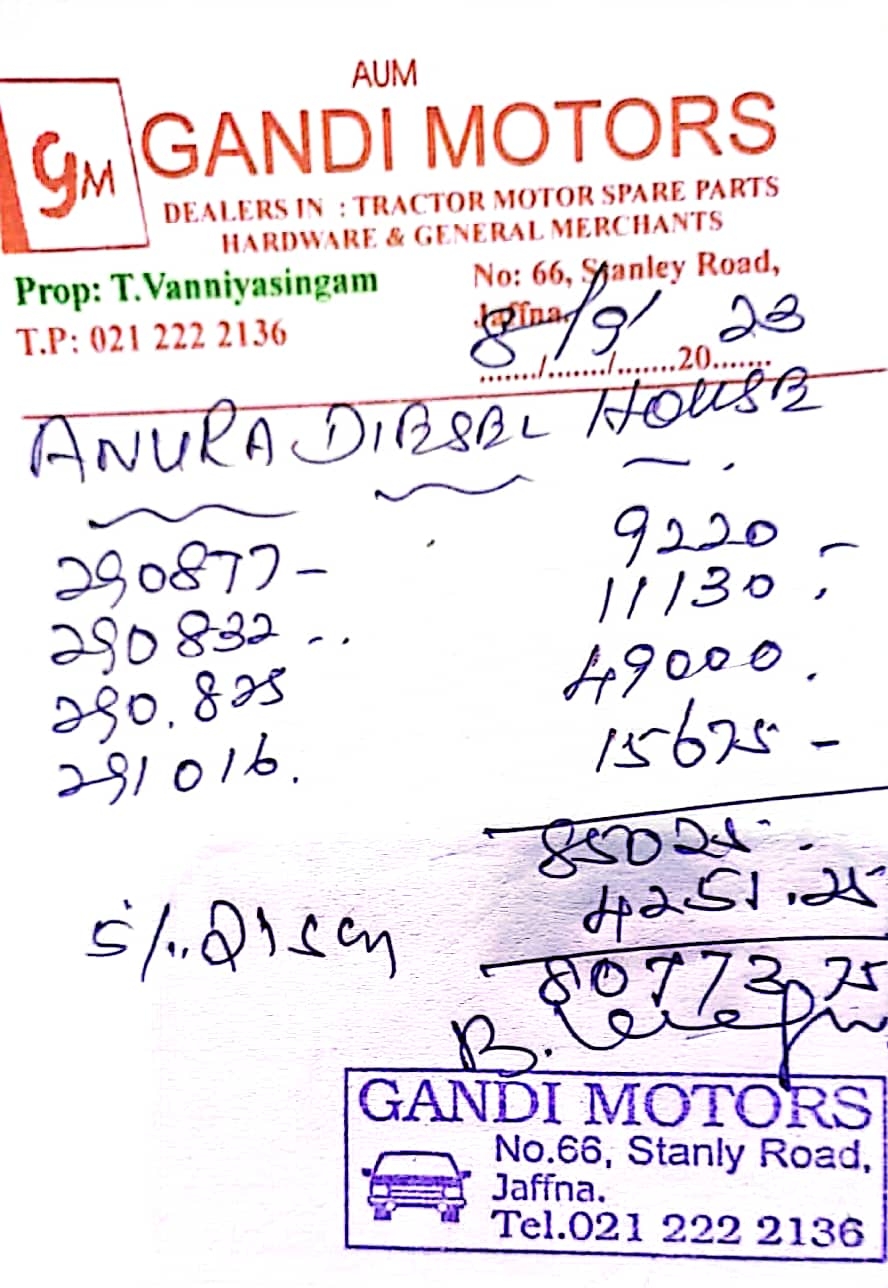 AUM
GM GANDI MOTORS
DEALERS IN : TRACTOR MOTOR SPARE PARTS
HARDWARE & GENERAL MERCHANTS
Prop: T.Vanniyasingam
No: 66, Stanley Road,
Jaffna.
T.P: 021 222 2136
8/9/ 2023
ANURA DIESEL HOUSE
290877 – 9220 –
290832 .. 11130 :
290.825 49000.
291016. 15675 –
85025 -.
5%.Disco 4251.25
80773.75
B.
GANDI MOTORS
No.66, Stanly Road,
Jaffna.
Tel.021 222 2136